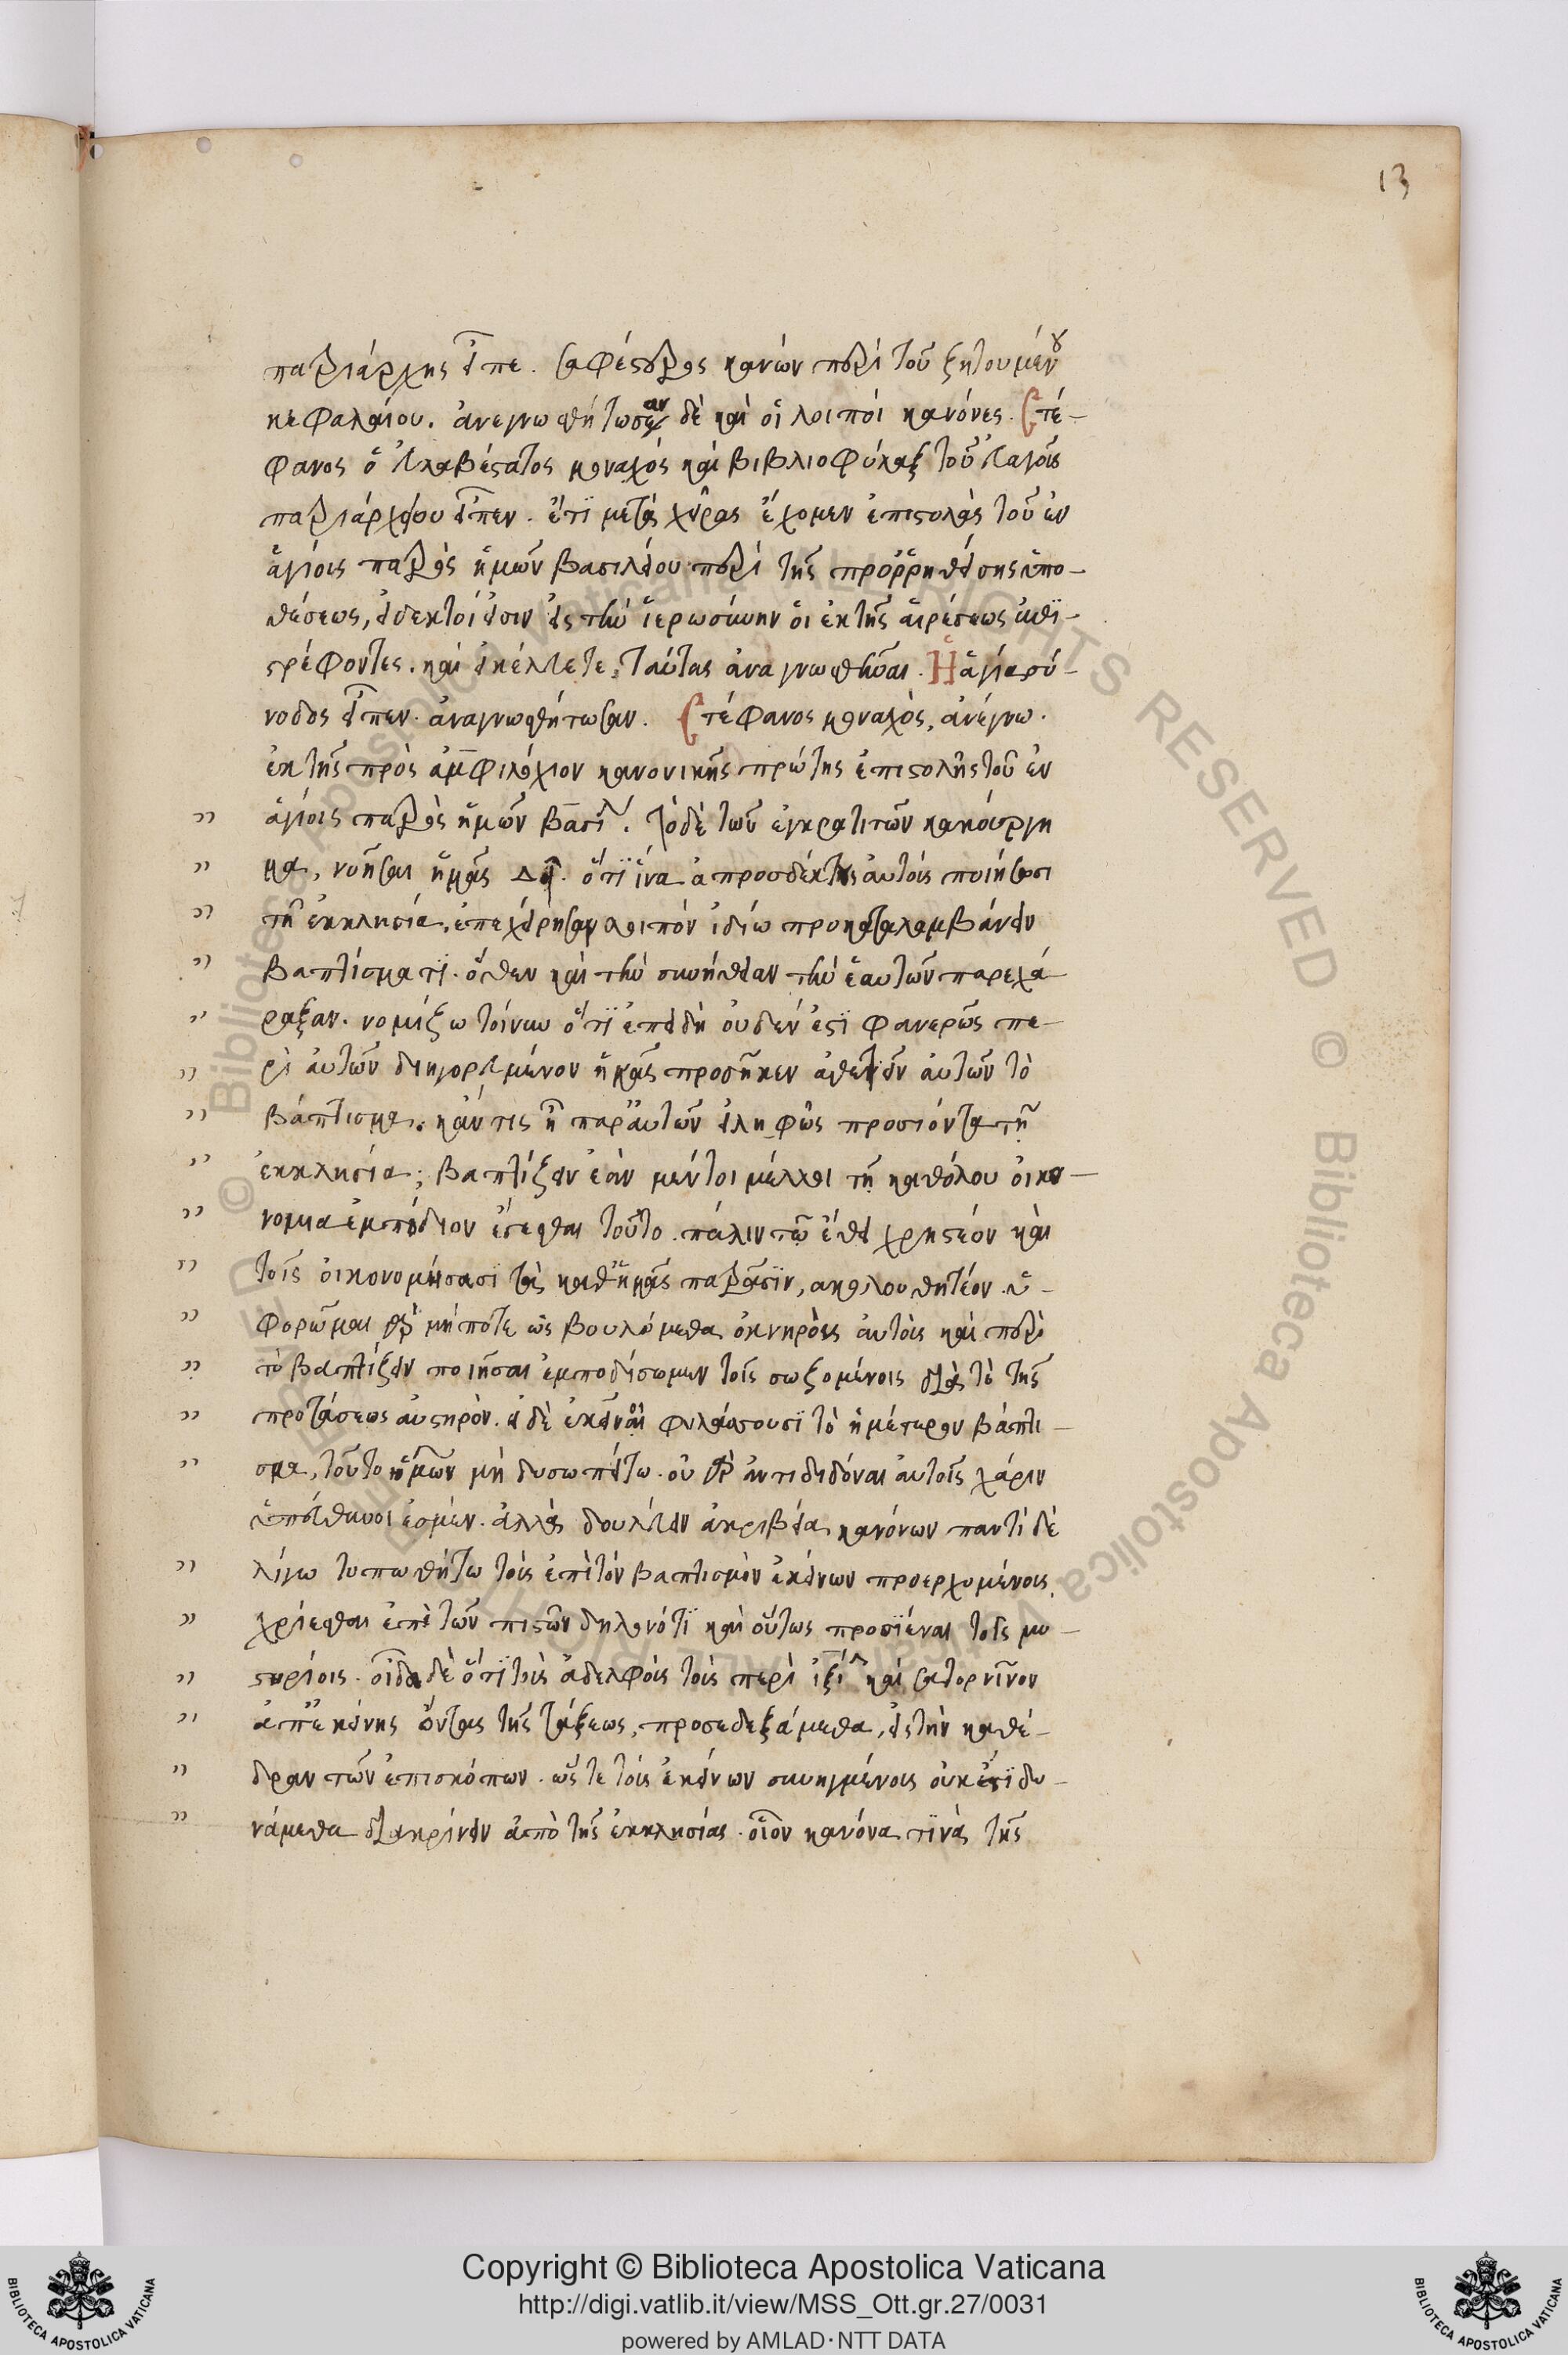 13
πατριάρχης εἶπε. σαφέστερος κανών περὶ τοῦ ζητουμένου
κεφαλαίου. ἀνεγνωσθήτωσαν δὲ καὶ οἱ λοιποὶ κανόνες. Στέ-
φανος ὁ εὐλαβέστατος μοναχός καὶ βιβλιοφύλαξ τοῦ εὐαγοῦς
πατριαρχείου εἶπεν. ἔτι μετὰ χεῖρας ἔχομεν ἐπιστολὰς τοῦ ἐν
ἁγίοις πατρὸς ἡμῶν βασιλείου περὶ τῆς προρρηθείσης ὑπο-
θέσεως, εἰ δεκτοί εἰσιν εἰς τὴν ἱερωσύνην οἱ ἐκ τῆς αἱρέσεως
στρέφοντες. καὶ εἰ κελεύετε, ταύτας ἀναγνωσθῆναι. Ἡ ἁγία σύ-
νοδος εἶπεν. ἀναγνωσθήτωσαν. Στέφανος μοναχὸς, ἀνέγνω.
ἐκ τῆς πρὸς ἀμφιλόχιον κανονικῆς πρώτης ἐπιστολῆς τοῦ ἐν
ἁγίοις πατρὸς ἡμῶν βασι. τὸ δὲ τῶν ἐγκρατιτῶν κακούργη
μα, νοῆσαι ἡμᾶς δεῖ. ὅτι ἵνα ἀπροσδέκτους αὐτοὺς ποιήσωσι
τῇ ἐκκλησία, ἐπεχείρησαν λοιπὸν ἰδίω προκαταλαμβάνειν
βαπτίσματι. ὅθεν καὶ τὴν συνήθειαν τὴν ἑαυτῶν παρεχά
ραξαν. νομίζω τοίνυν ὅτι ἐπειδὴ οὐδέν ἐστι φανερῶς πε-
ρὶ αὐτῶν διηγορευμένον ἡμᾶς προσῆκεν ἀθετεῖν αὐτῶν τὸ
βάπτισμα. κἄν τις ᾖ παρ' αὐτῶν εἰληφὼς προσιόντα τῇ
ἐκκλησία; βαπτίζειν ἐὰν μέντοι μέλλοι τῇ καθόλου οἰκο-
νομια ἐμπόδιον ἔσεσθαι τοῦτο. πάλιν τῷ ἔθει χρηστέον καὶ
τοῖς οἰκονομήσασι τὰ καθ' ἡμᾶς πατράσιν, ακολουθητέον. ὑ-
φορῶμαι γὰρ μήποτε ὡς βουλόμεθα ὀκνηροὺς αὐτοὺς καὶ περὶ
τὸ βαπτίζειν ποιῆσαι ἐμποδίσωμεν τοῖς σωζομένοις διὰ τὸ τῆς
προτάσεως αὐστηρὸν. εἰ δὲ ἐκεῖνοι φυλάσσουσι τὸ ἡμέτερον βάπτι-
σμα, τοῦτο ἡμῶν μὴ δυσωπείτω. οὐ γὰρ ἀντιδιδόναι αὐτοῖς χάριν
ὑπεύθυνοι ἐσμέν. ἀλλὰ δουλεύειν ἀκριβεία κανόνων παντὶ δὲ
λόγω τυπωθήτω τοὺς ἐπὶ τὸν βαπτισμὸν ἐκείνων προερχομένους
χρίεσθαι ἐπὶ τῶν πιστῶν δηλονότι καὶ οὕτως προσϊέναι τοῖς μυ-
στηρίοις. οἶδα δὲ ὅτι τοὺς ἀδελφοὺς τοὺς περὶ ἰζὶ καὶ σατορνῖνον
ἀπ' ἐκείνης ὄντας τῆς τάξεως, προσεδεξάμεθα, εἰς τὴν καθέ-
δραν τῶν ἐπισκόπων. ὥστε τοὺς ἐκείνων συνημμένους οὐκ ἔτι δυ-
νάμεθα διακρίνειν ἀπὸ τῆς ἐκκλησίας. οἷον κανόνα τινὰ τῆς
Copyright © Biblioteca Apostolica Vaticana
http://digi.vatlib.it/view/MSS_Ott.gr.27/0031
powered by AMLAD·NTT DATA